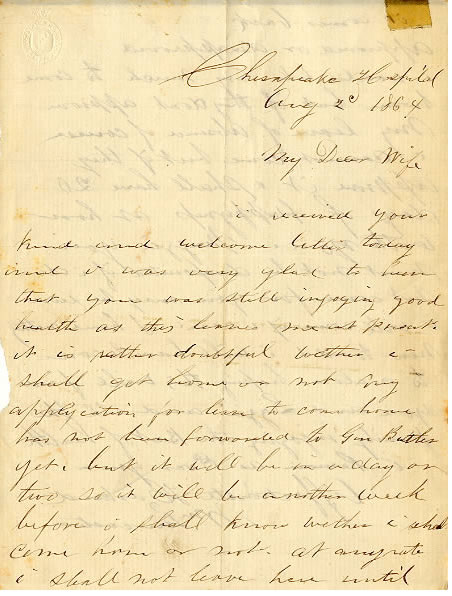 Chesapeake Hospital
Aug 2d 1864
My Dear Wife
i received your
kind and welcome letter today
and i was very glad to hear
that you was still injoying good
health as this leaves me at present.
it is rather doubtful wether i
shall get home or not my
application for leave to come home
has not been forwarded to Gen Butler
yet. but it will be in a day or
two so it will be another week
before i shall know wether i shall
come home or not. at anyrate
i shall not leave here until